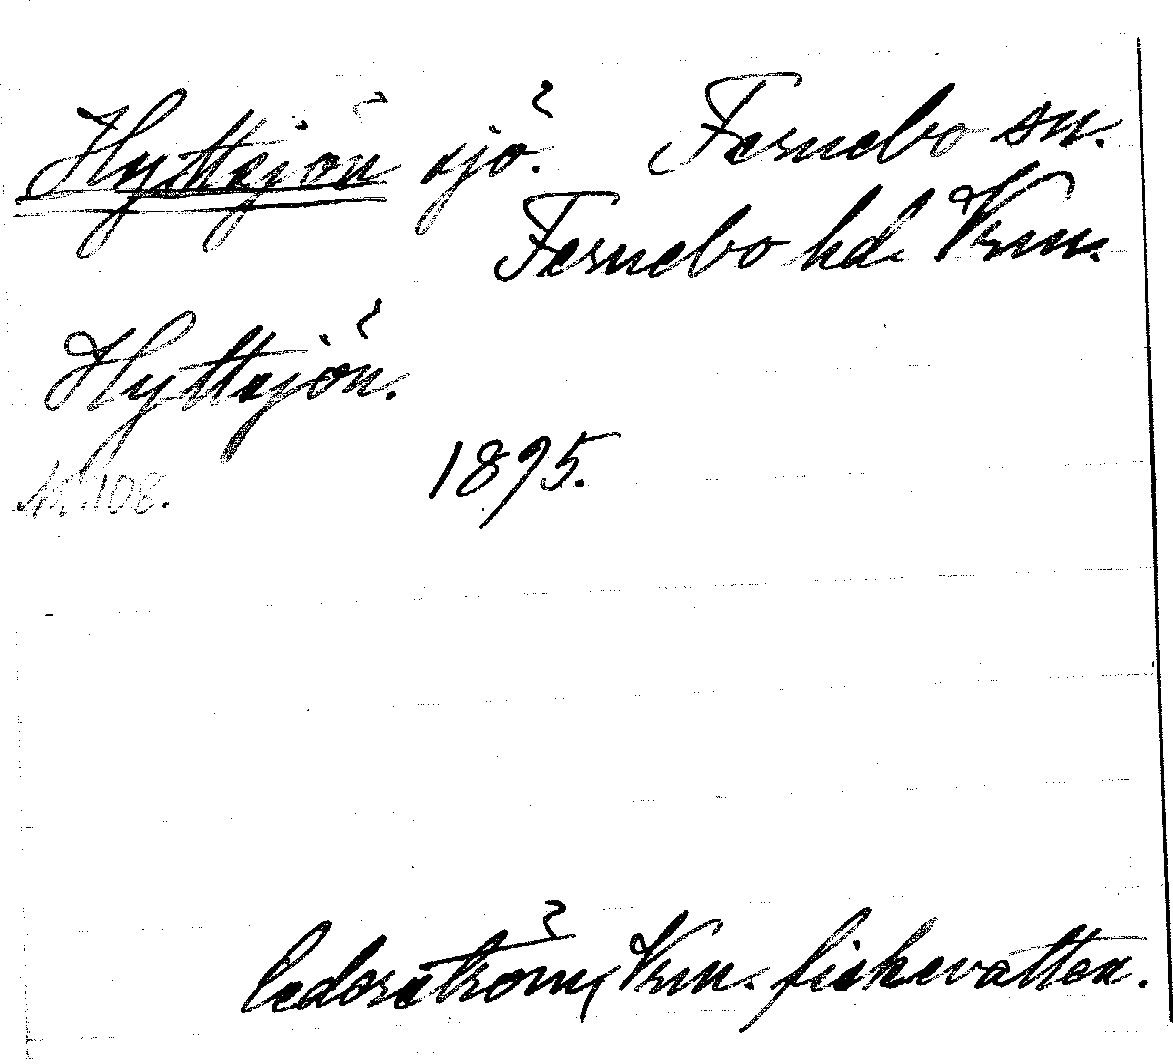 Hyttsjön sjö. Fernebo sn.
Fernebo hd. Vrm.
Hyttsjön.
N:108. 1895.
Cederström, Vrm. fiskevatten.